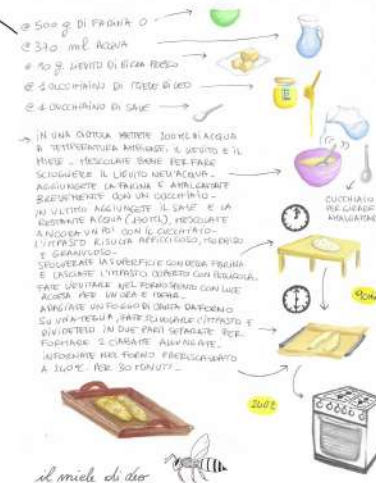 500 g DI FARINA 0
370 ml ACQUA
10 g LIEVITO DI BIRRA FRESCO
1 CUCCHIAINO DI MIELE DI LEO
1 CUCCHIAINO DI SALE
IN UNA CIOTOLA METTETE 200 ML DI ACQUA
A TEMPERATURA AMBIENTE, IL LIEVITO E IL
MIELE - MESCOLATE BENE PER FARE
SCIOGLIERE IL LIEVITO NELL'ACQUA -
AGGIUNGETE LA FARINA E AMALGAMATE
BREVEMENTE CON UN CUCCHIAIO -
IN ULTIMO AGGIUNGETE IL SALE E LA
RESTANTE ACQUA (170ML), MESCOLATE
ANCORA UN PO' CON IL CUCCHIAIO -
L'IMPASTO RISULTA APPICCICOSO, MORBIDO
E GRANULOSO -
SPOLVERATE LA SUPERFICIE CON DELLA FARINA
E LASCIATE L'IMPASTO COPERTO CON PELLICOLA.
FATE LIEVITARE NEL FORNO SPENTO CON LUCE
ACCESA PER UN'ORA E MEZZA -
ADAGIATE UN FOGLIO DI CARTA DA FORNO
SU UNA TEGLIA, FATE SCIVOLARE L'IMPASTO E
DIVIDETELO IN DUE PARTI SEPARATE PER
FORMARE 2 CIABATTE ALLUNGATE -
INFORNATE NEL FORNO PRERISCALDATO
A 240°C PER 30 MINUTI -
CUCCHIAIO
PER
AMALGAMARE
90
240°
il miele di leo